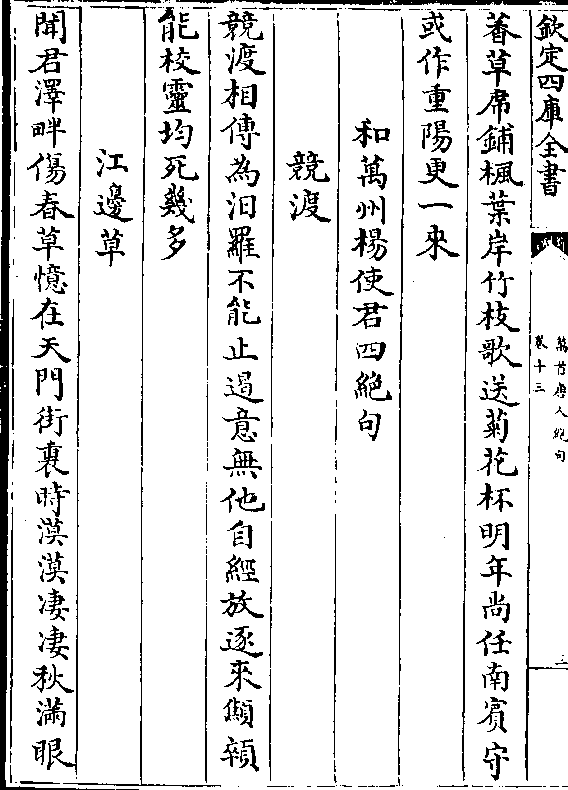 欽定四庫全書
萬首唐人絶句
卷十三
三
蓍草席鋪楓葉岸竹枝歌送菊花杯明年尚任南賔守
或作重陽更一來
和萬州楊使君四絶句
競渡
競渡相傳為汨羅不能止遏意無他自經放逐來顦顇
能校靈均死幾多
江邊草
聞君澤畔傷春草憶在天門街裏時漠漠淒淒秋滿眼